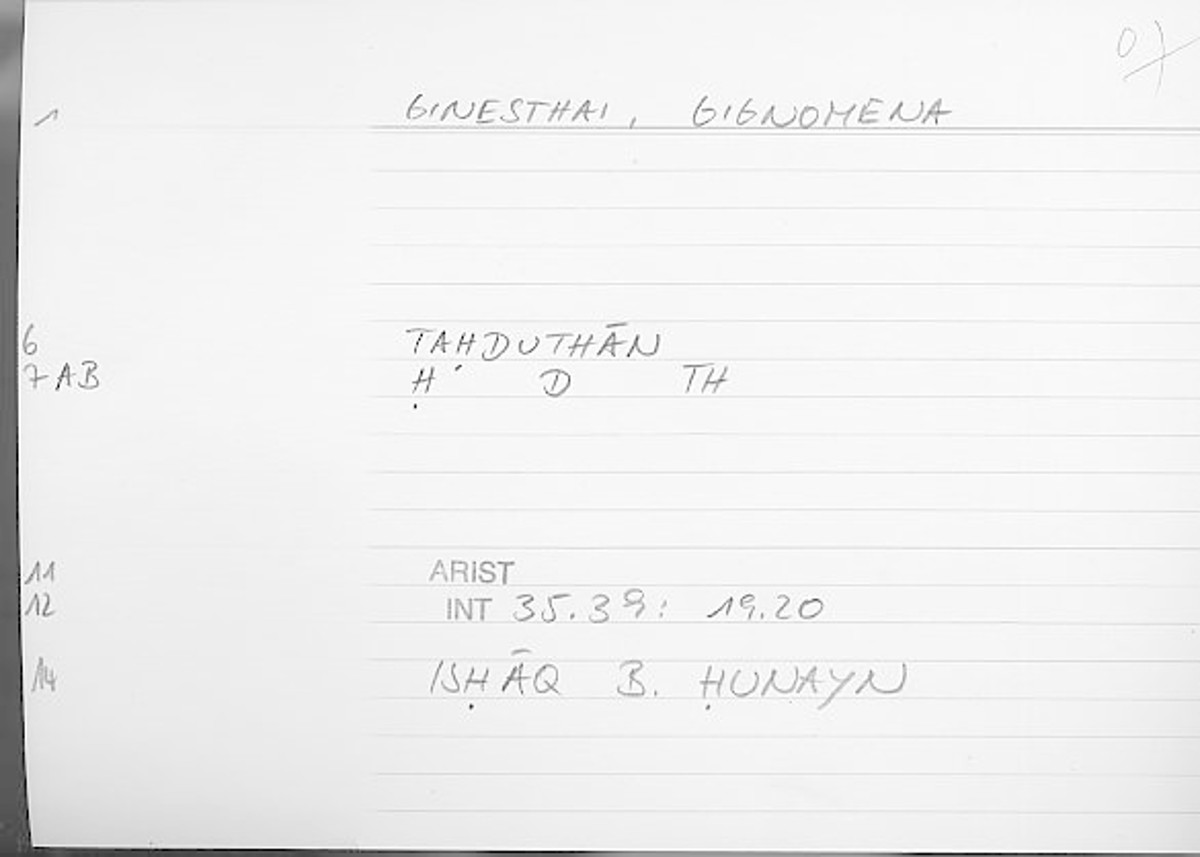 07
1 GINESTHAI, GIGNOMENA
6 TAḤDUTHĀN
7 AB Ḥ D TH
11 ARIST
12 INT 35.39: 19.20
14 ISḤĀQ B. ḤUNAYN